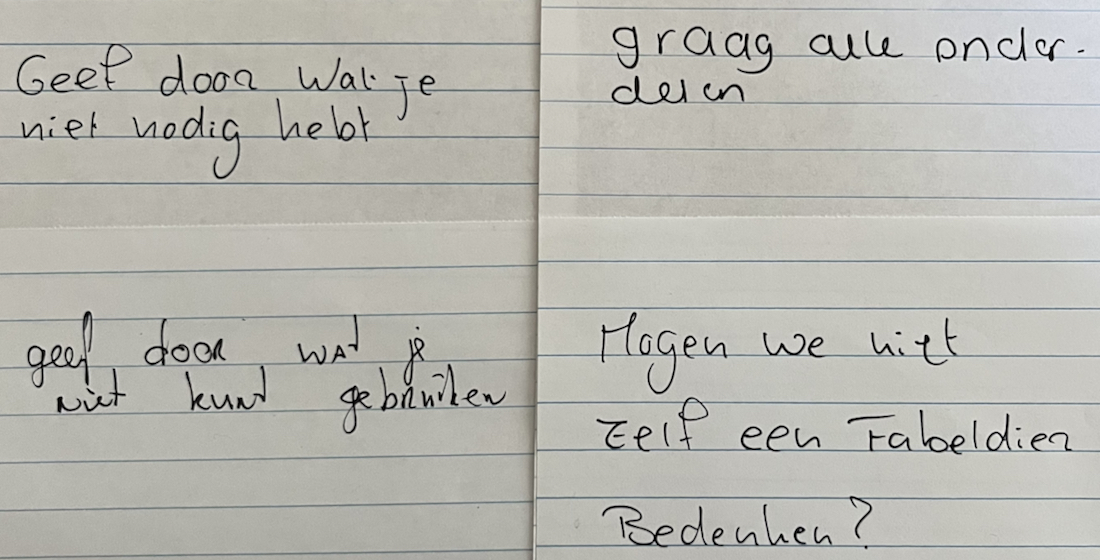 Geef door wat je
niet nodig hebt
graag alle onder-
delen
geef door wat je
niet kunt gebruiken
Mogen we niet
zelf een Fabeldier
Bedenken?